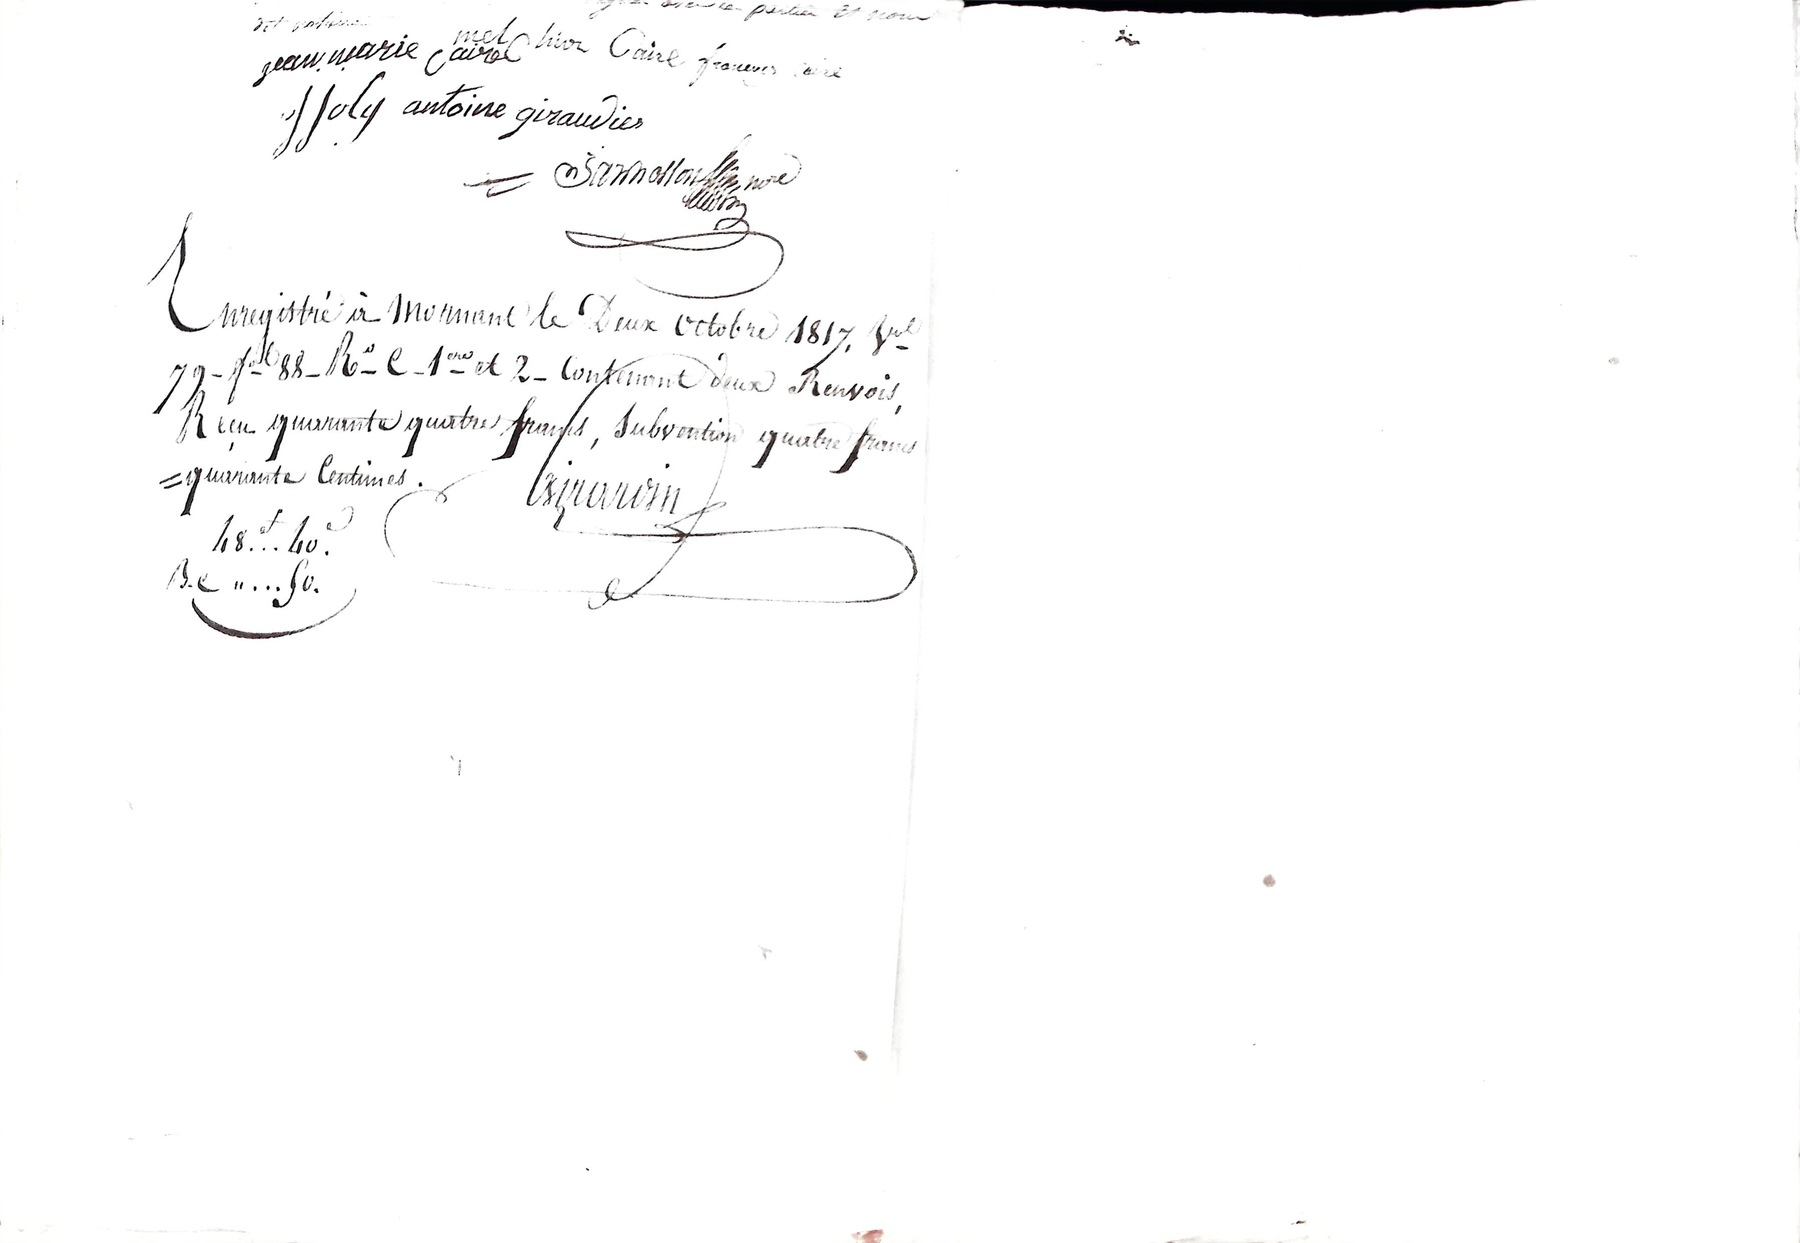 parties et nous
jean marie Caire melchior Caire françois Caire
Joly antoine giraudier
nore
Enregistré à Mornant le Deux Octobre 1817. Vol
79 - fol 88 - Ro C - 1ere et 2 - Contenant deux Renvois,
Reçu quarante quatre francs, Subvention quatre francs
=quarante Centimes.
Girardin
48.f.. 40.c
B.C "... 50.